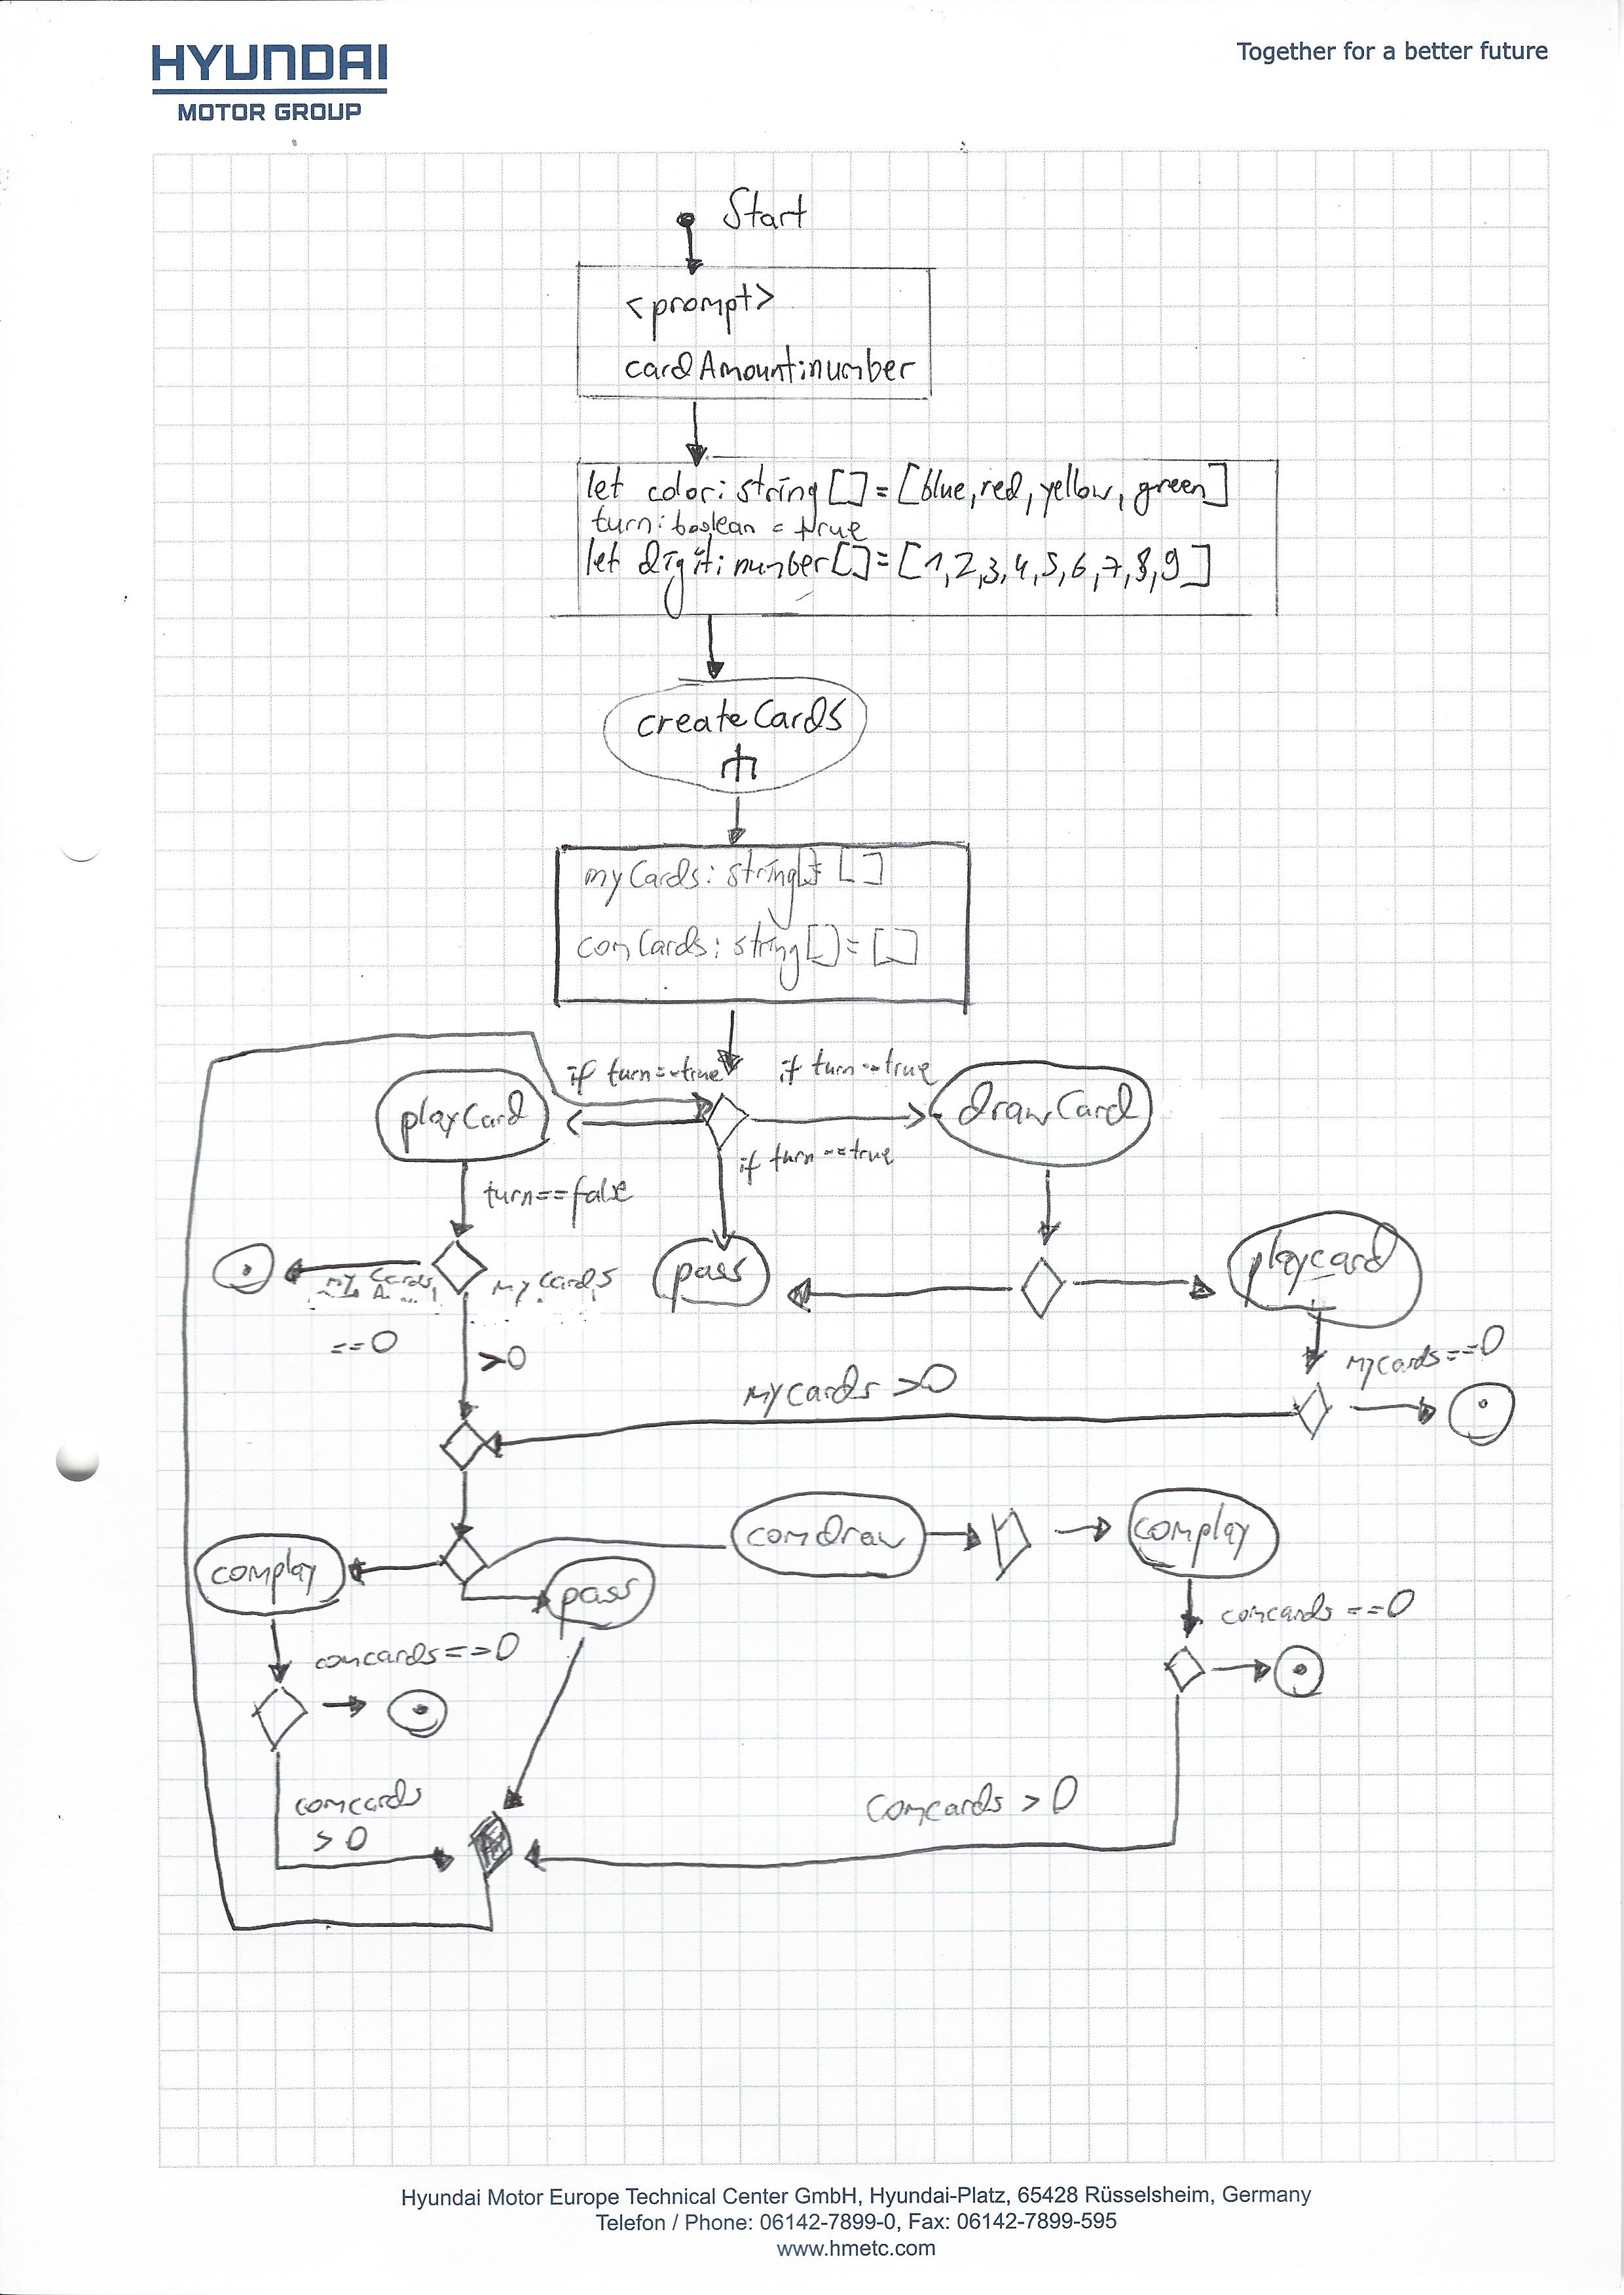 HYUNDAI
MOTOR GROUP
Together for a better future
Start
<prompt>
cardAmount:number
let color: string[] = [blue,red,yellow,green]
turn: boolean = true
let digit: number[] = [1,2,3,4,5,6,7,8,9]
createCards
myCards: string[] = []
comCards: string[] = []
if turn==true
if turn==true
playCard
drawCard
if turn==true
turn==false
playcard
pass
my Cards
my cards
==0
>0
mycards==0
my cards >0
comdraw
complay
complay
pass
comcards ==0
comcards==0
comcards
>0
comcards >0
Hyundai Motor Europe Technical Center GmbH, Hyundai-Platz, 65428 Rüsselsheim, Germany
Telefon / Phone: 06142-7899-0, Fax: 06142-7899-595
www.hmetc.com